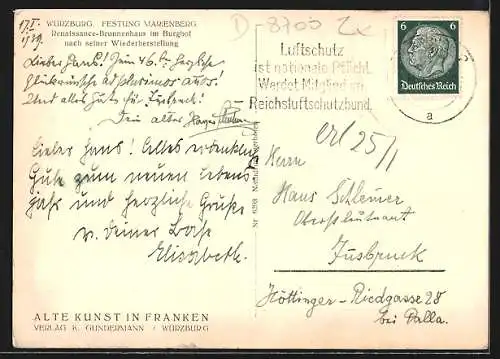 WÜRZBURG, FESTUNG MARIENBERG
Renaissance-Brunnenhaus im Burghof
nach seiner Wiederherstellung
17.I.
1939.
Lieber Hans! Zum 46.
Glückwünsche
Und alles Gute für
Dein alter
Lieber Hans! Alles erdenklich
Gute zum neuen Lebens
jahr und herzliche Grüße
v. deiner Base
Elisabeth.
ALTE KUNST IN FRANKEN
VERLAG K. GUNDERMANN / WÜRZBURG
D-8700
Luftschutz
ist nationale Pflicht.
Werdet Mitglied im
Reichsluftschutzbund.
6 6
Deutsches Reich
a
erl 25/1
Herrn
Hans
Oberstleutnant
Innsbruck
Höttinger-Riedgasse 28
bei Palla.